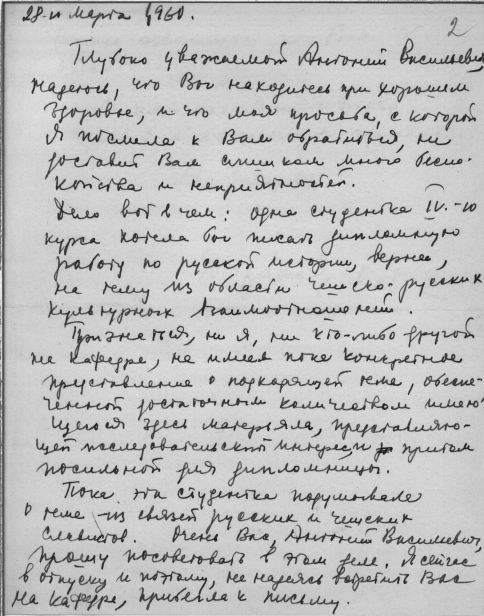 28-го марта 1960.
2
Глубоко уважаемый Антоний Васильевич,
надеюсь, что Вы находитесь при хорошем
здоровье, и что моя просьба, с которой
я посмела к Вам обратиться, не
доставит Вам слишком много беспо-
койства и неприятностей.
Дело вот в чем: одна студентка IV.-го
курса хотела бы писать дипломную
работу по русской истории, вернее,
на тему из области чешско-русских
культурных взаимоотношений.
Признаться, ни я, ни кто-либо другой
на кафедре, не имеем пока конкретное
представление о подходящей теме, обеспе-
ченной достаточным количеством имею-
щегося здесь матерьяла, представляю-
щей последовательский интерес и притом
посильной для дипломницы.
Пока эта студентка подумывала
о теме из связей русских и чешских
славистов. Очень Вас, Антоний Васильевич,
прошу посоветовать в этом деле. Я сейчас
в отпуску и поэтому, не надеясь встретить Вас
на кафедре, прибегла к письму.